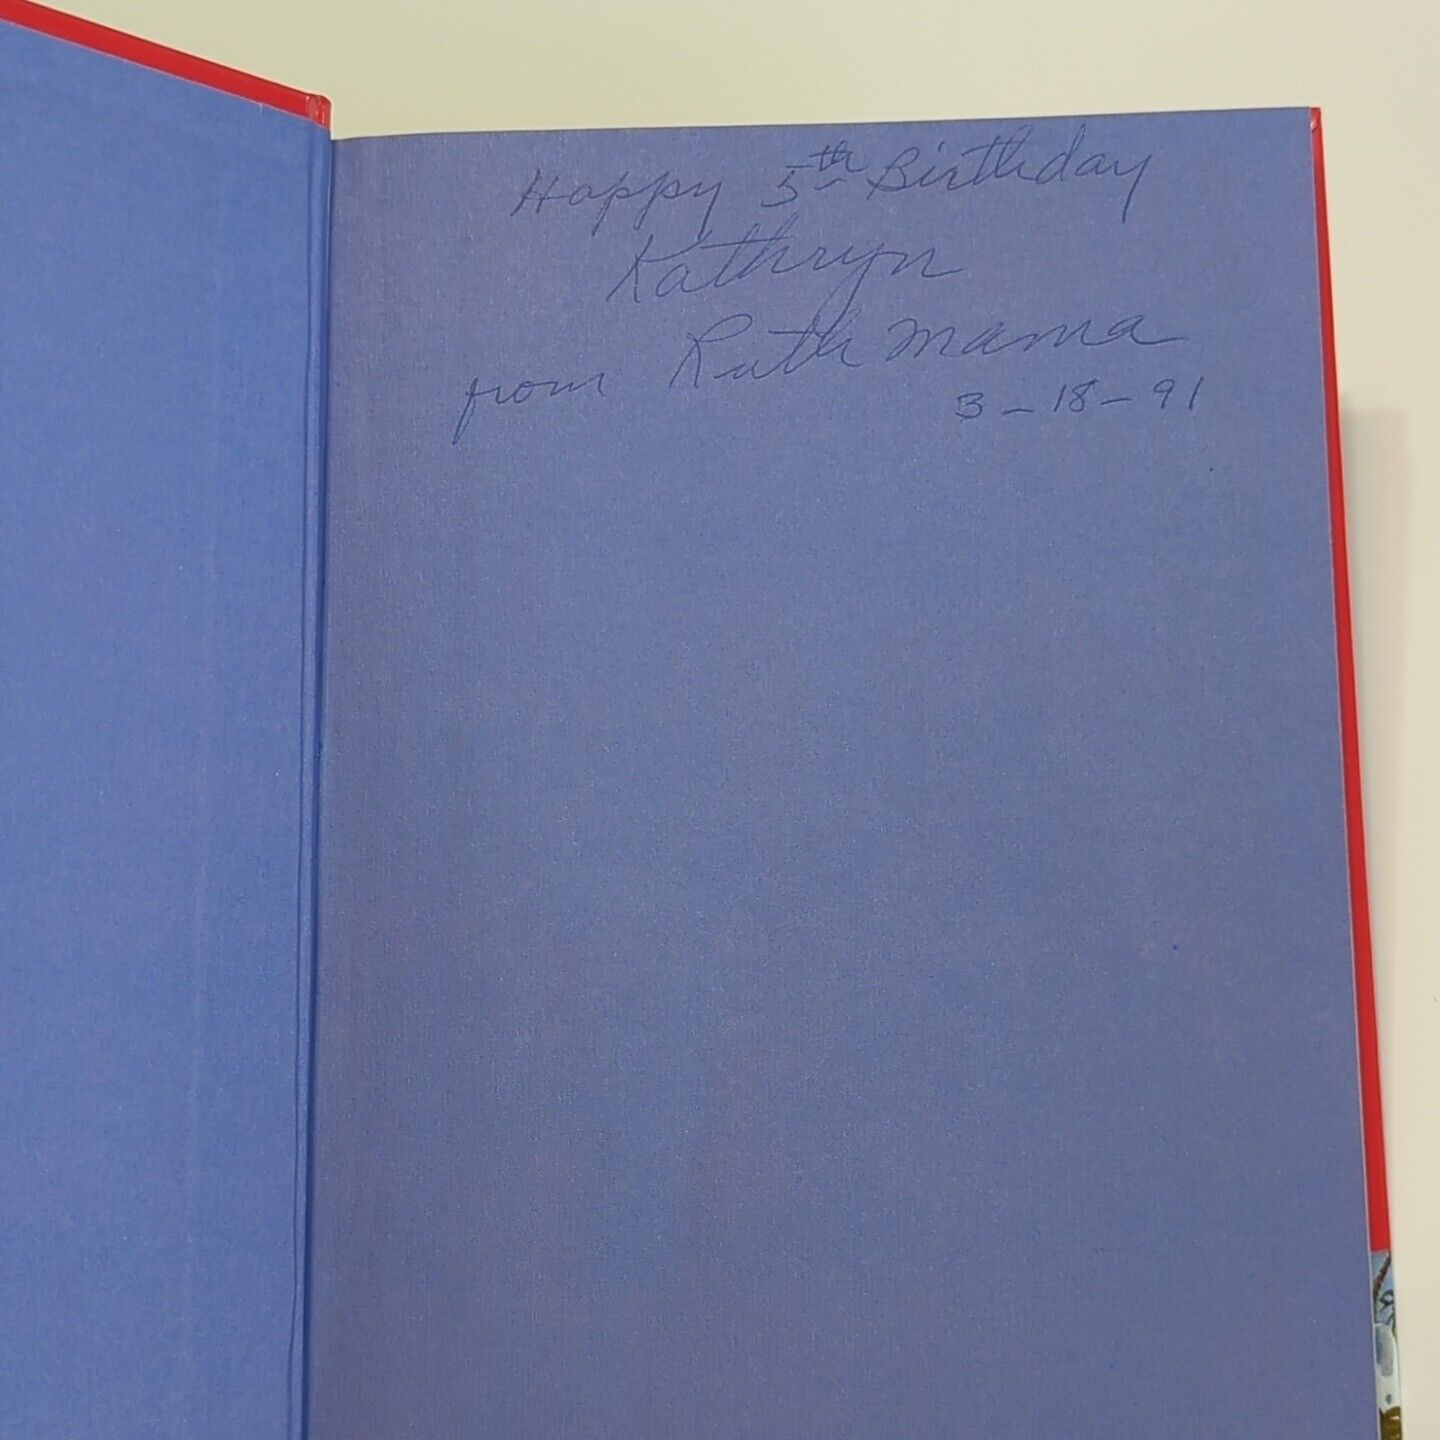 Happy 5th Birthday
Kathryn
from Ruth Mama
3-18-91